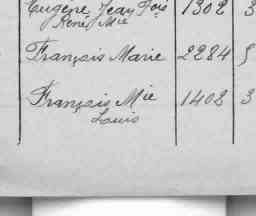 Eugène Jean Fois 1302 3
René Mie
François Marie 2284 5
François Mie 1402 3
Louis